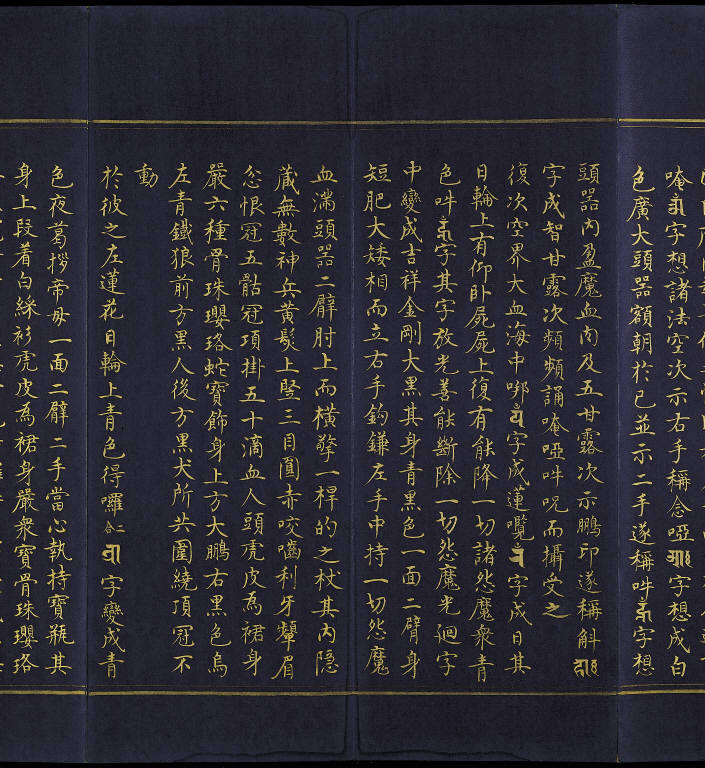 唵字想諸法空次示右手稱念啞字想成白
色廣大頭器額朝於已並示二手遂稱吽字想
頭器內盈魔血肉及五甘露次示鵬印遂稱斛
字成智甘露次頻頻誦唵啞吽呪而攝受之
復次空界大血海中字成蓮囕字成日其
日輪上有仰卧屍屍上復有能降一切諸怨魔衆青
色吽字其字放光善能斷除一切怨魔光迴字
中變成吉祥金剛大黑其身青黑色一面二臂身
短肥大矮相而立右手鈎鎌左手中持一切怨魔
血滿頭器二臂肘上而橫擎一桿的之杖其內隱
藏無數神兵黃髮上豎三目圓赤咬嚙利牙顰眉
忿恨冠五骷冠項掛五十滴血人頭虎皮為裙身
嚴六種骨珠瓔珞蛇寶飾身上方大鵬右黑色烏
左青鐵狼前方黑人後方黑犬所共圍繞頂冠不
動
於彼之左蓮花日輪上青色得囉二合字變成青
色夜葛拶帝毋一面二臂二手當心執持寶瓶其
身上段着白綵衫虎皮為裙身嚴衆寶骨珠瓔珞